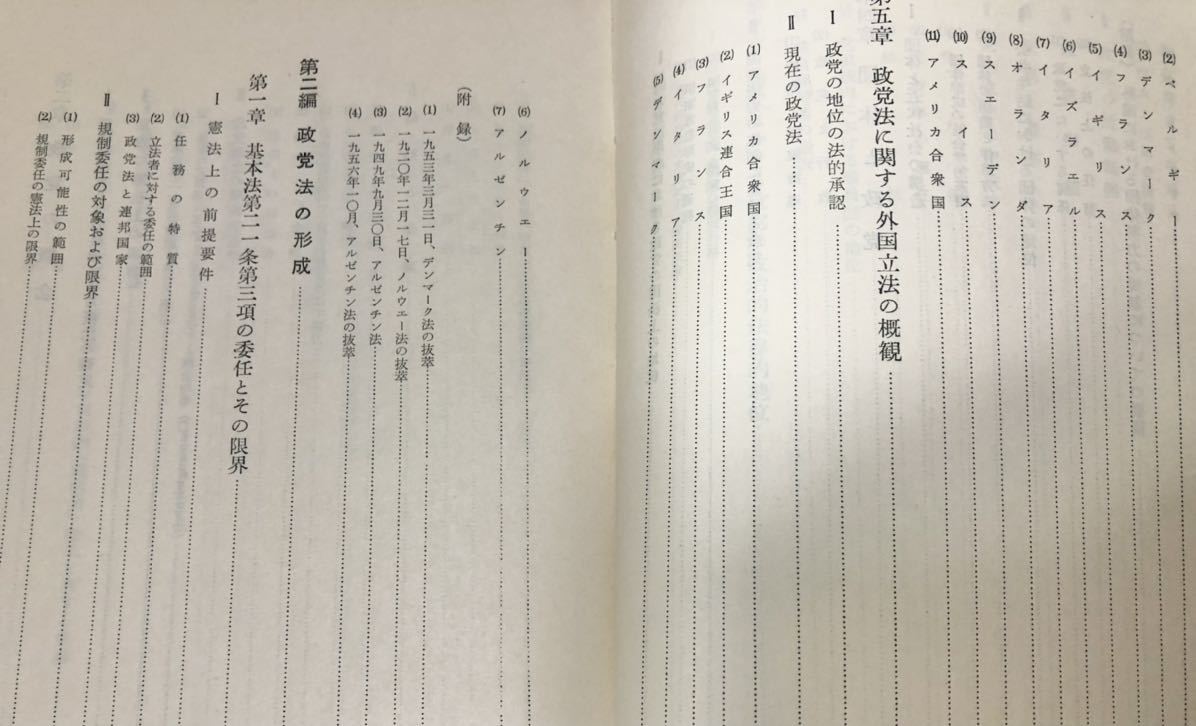 (2) ベルギー
(3) デンマーク
(4) フランス
(5) イギリス
(6) イズラエル
(7) イタリア
(8) オランダ
(9) スエーデン
(10) スイス
(11) アメリカ合衆国
第五章 政党法に関する外国立法の概観
Ⅰ 政党の地位の法的承認
Ⅱ 現在の政党法
(1) アメリカ合衆国
(2) イギリス連合王国
(3) フランス
(4) イタリア
(5) デンマーク
(6) ノルウエー
(7) アルゼンチン
(附録)
(1) 一九五三年三月三一日、デンマーク法の抜萃
(2) 一九二〇年一二月一七日、ノルウエー法の抜萃
(3) 一九四九年九月三〇日、アルゼンチン法
(4) 一九五六年一〇月、アルゼンチン法の抜萃
第二編 政党法の形成
第一章 基本法第二一条第三項の委任とその限界
Ⅰ 憲法上の前提要件
(1) 任務の特質
(2) 立法者に対する委任の範囲
(3) 政党法と連邦国家
Ⅱ 規制委任の対象および限界
(1) 形成可能性の範囲
(2) 規制委任の憲法上の限界